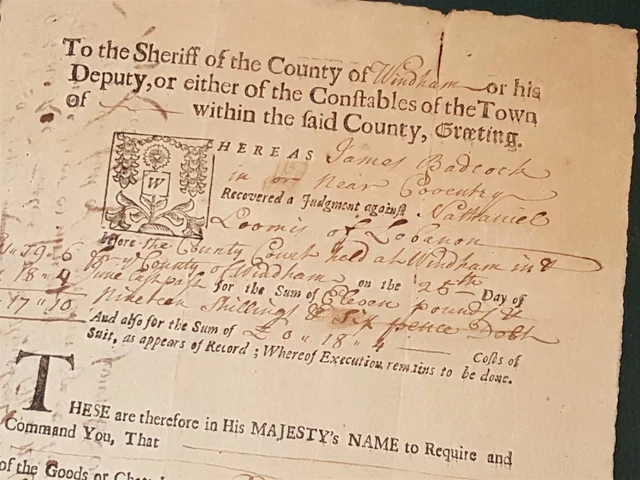 To the Sheriff of the County of Windham or his
Deputy, or either of the Constables of the Town
of within the said County, Greeting.
WHEREAS James Badcock
in or Near Coventry
Recovered a Judgment against Nathaniel
Loomis of Lebanon
before the County Court held at Windham in &
for ye County of Windham on the 25th Day of
June last past for the Sum of Eleven pounds
Nineteen Shillings & Six pence Debt
And also for the Sum of £0 " 18 " 4 Costs of
Suit, as appears of Record; Whereof Execution remains to be done.
19 " 6
18 " 4
17 " 10
THESE are therefore in His MAJESTY's NAME to Require and
Command You, That
of the Goods or